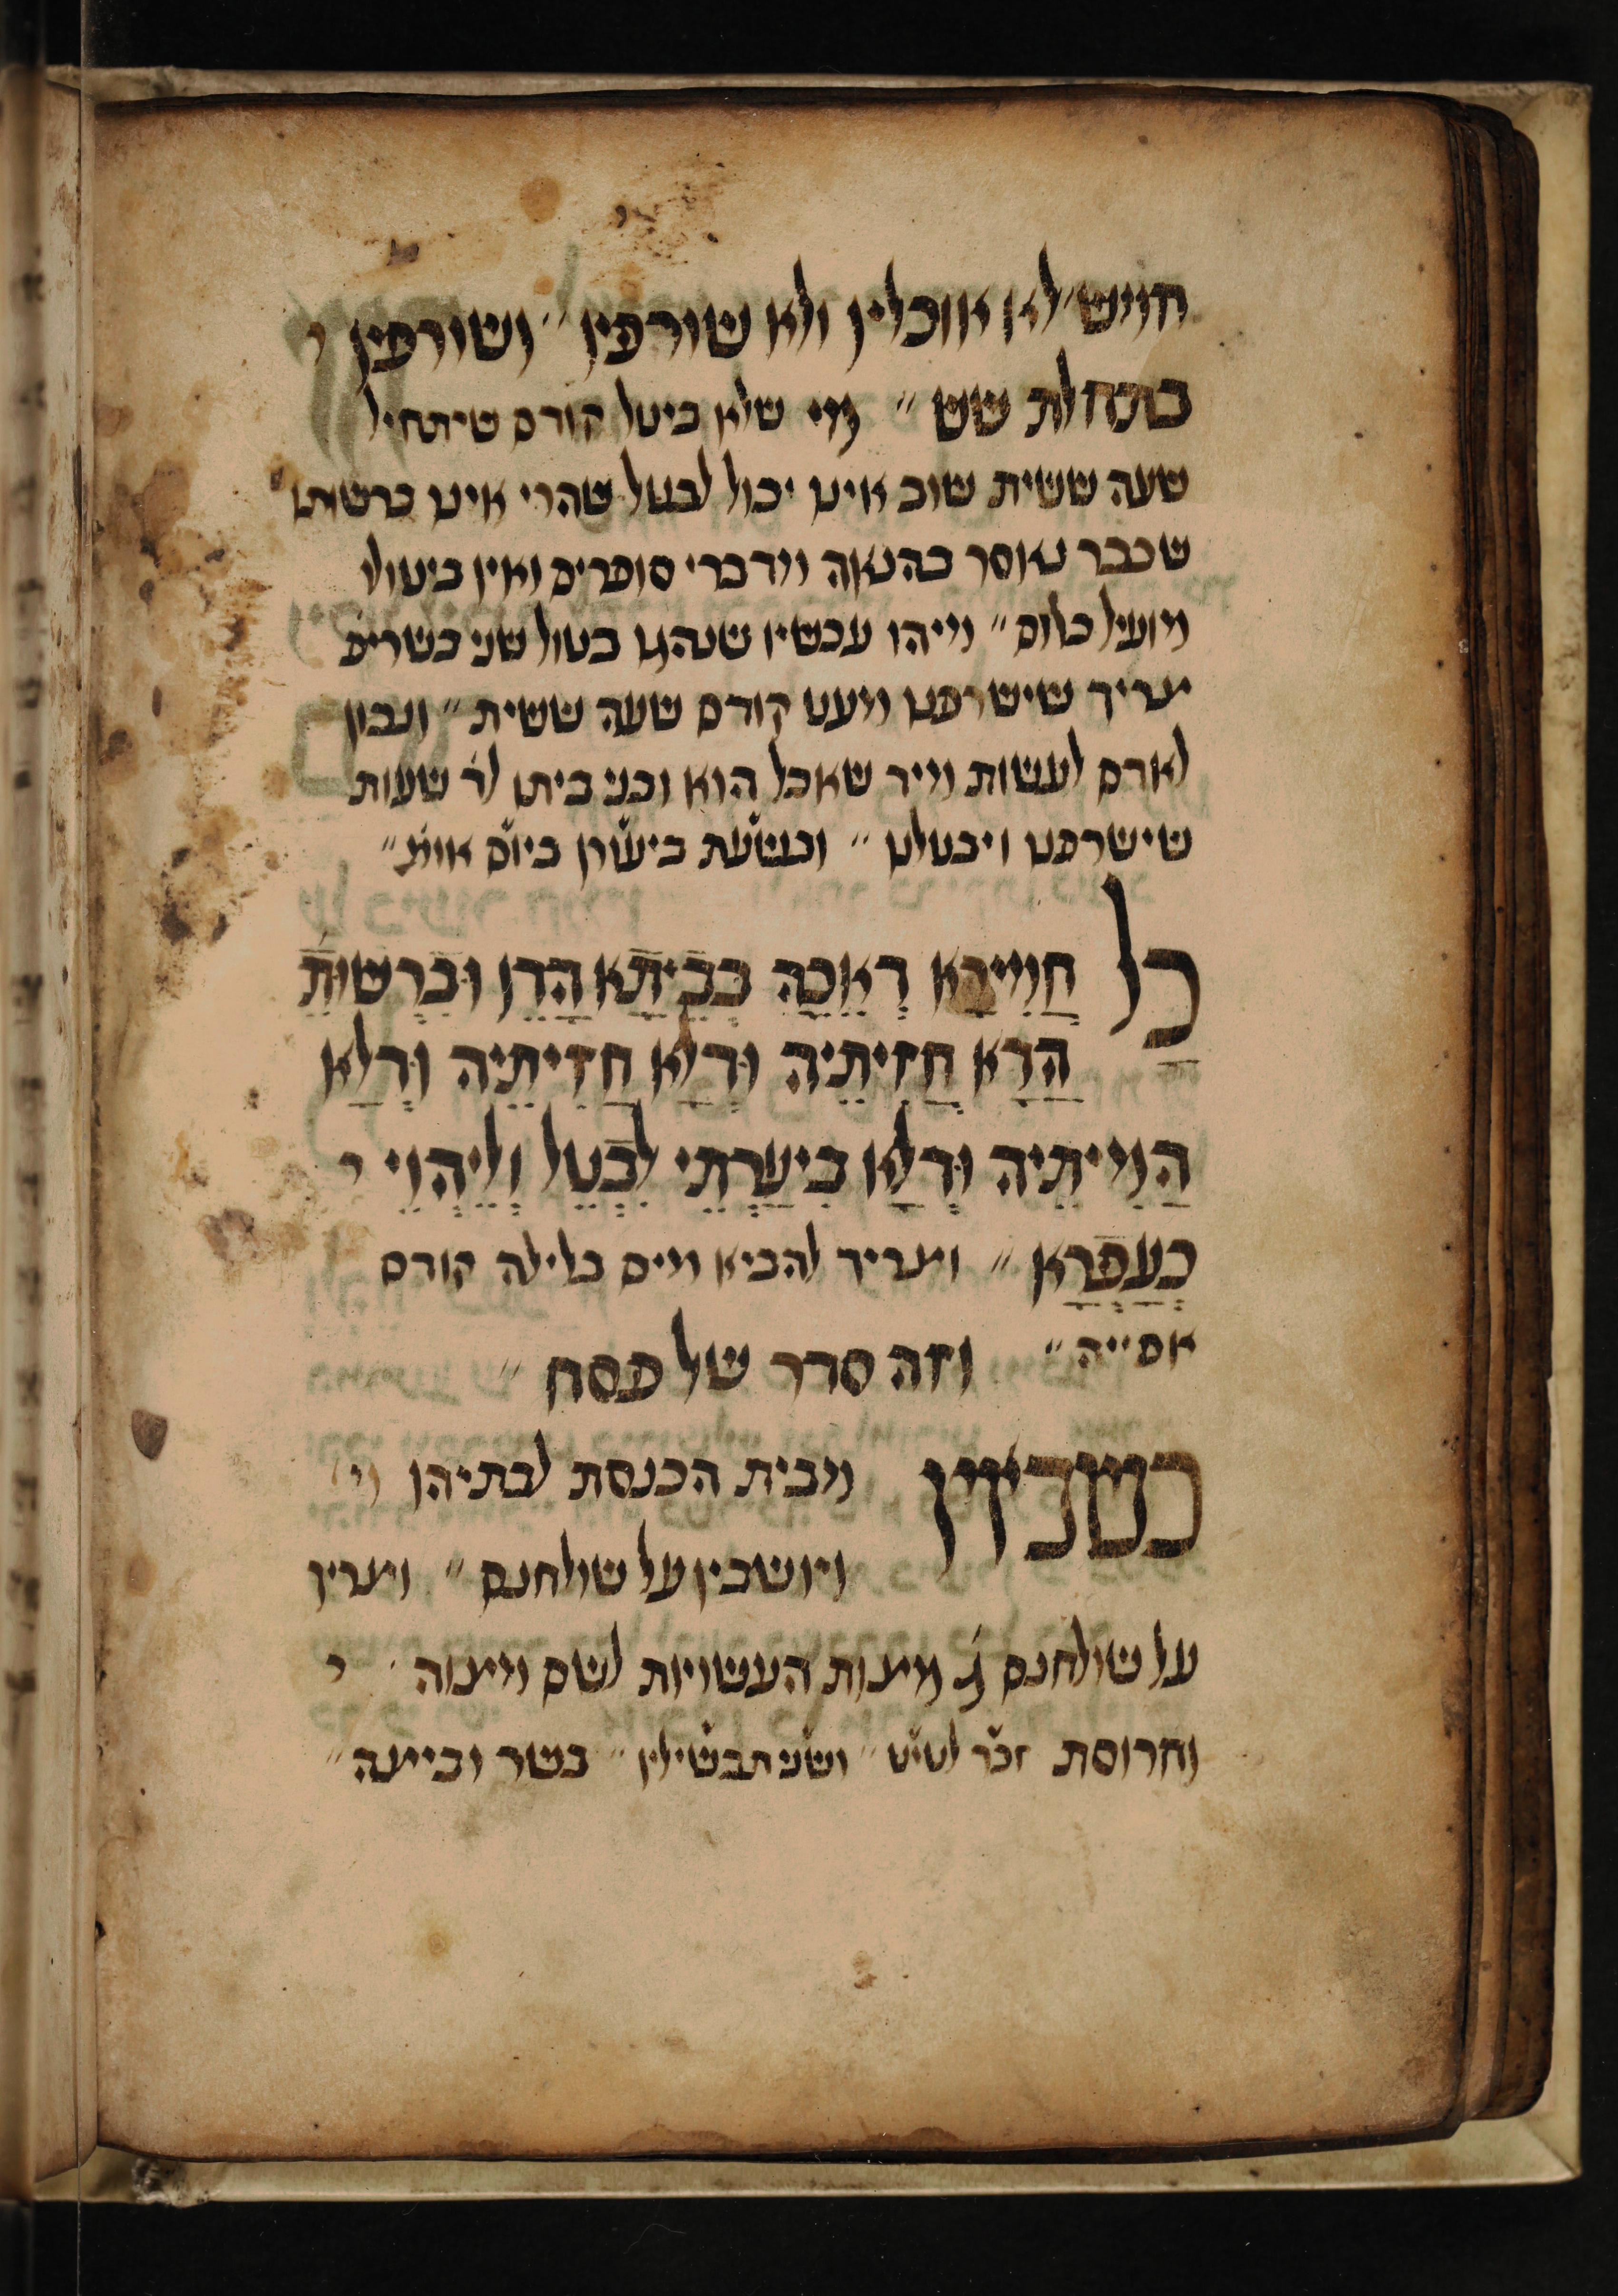 חמש׳ לא אוכלין ולא שורפין ״ ושורפין י
בתחלת שש ״ מי שלא ביטל קודם שיתחיל
שעה ששית שוב אינו יכול לבטל שהרי אינו ברשותו
שכבר נאסר בהנאה מדברי סופרים ואין ביטולו
מועיל כלום ״ מיהו עכשיו שנהגו בטול שני כשרים
צריך שישרפנו מעט קודם שעה ששית ״ ונכון
לאדם לעשות מיד שאכל הוא ובני ביתו לד׳ שעות
שישרפנו ויבטלנו ״ ובשעת ביעורן ביום אומ׳ ״
כָל חֲמִירָא דְאִכָה בְבֵיתָא הָדֵן וּבִרְשוּתֵ
הָדָא חֲזִיתֵיה וּדְלָא חֲזִיתֵיה וּדְלָא
הֲמִיתֵיה וּדְלָא בִיעַרְתֵי לִבְטֵל וְלֵיהֱוֵי י
כְעַפְרָא ״ וצריך להביא מים בלילה קודם
אפייה ״ וזה סדר של פסח ״
כשבאין מבית הכנסת לבתיהן
ויושבין על שולחנם ״ ועורין
על שולחנם ג׳ מצות העשויות לשם מצוה י
וחרוסת זכר לטיט ״ ושני תבשילין ״ בשר וביצה ״